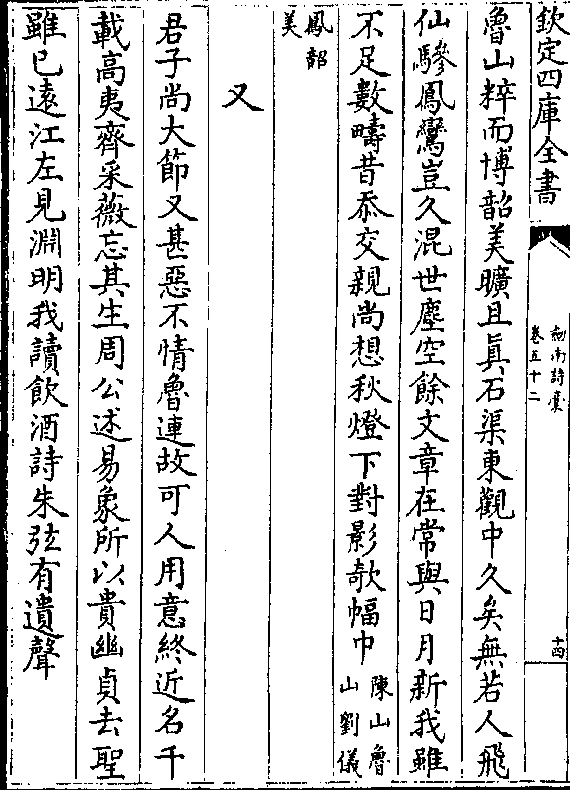 欽定四庫全書
劍南詩稾
卷五十二
十四
魯山粹而博韶美曠且真石渠東觀中久矣無若人飛
仙驂鳳鸞豈久混世塵空餘文章在常與日月新我雖
不足數疇昔忝交親尚想秋燈下對影欹幅巾陳山魯山劉儀
鳳韶美
又
君子尚大節又甚惡不情魯連故可人用意終近名千
載高夷齊采薇忘其生周公述易象所以貴幽貞去聖
雖已遠江左見淵明我讀飲酒詩朱弦有遺聲